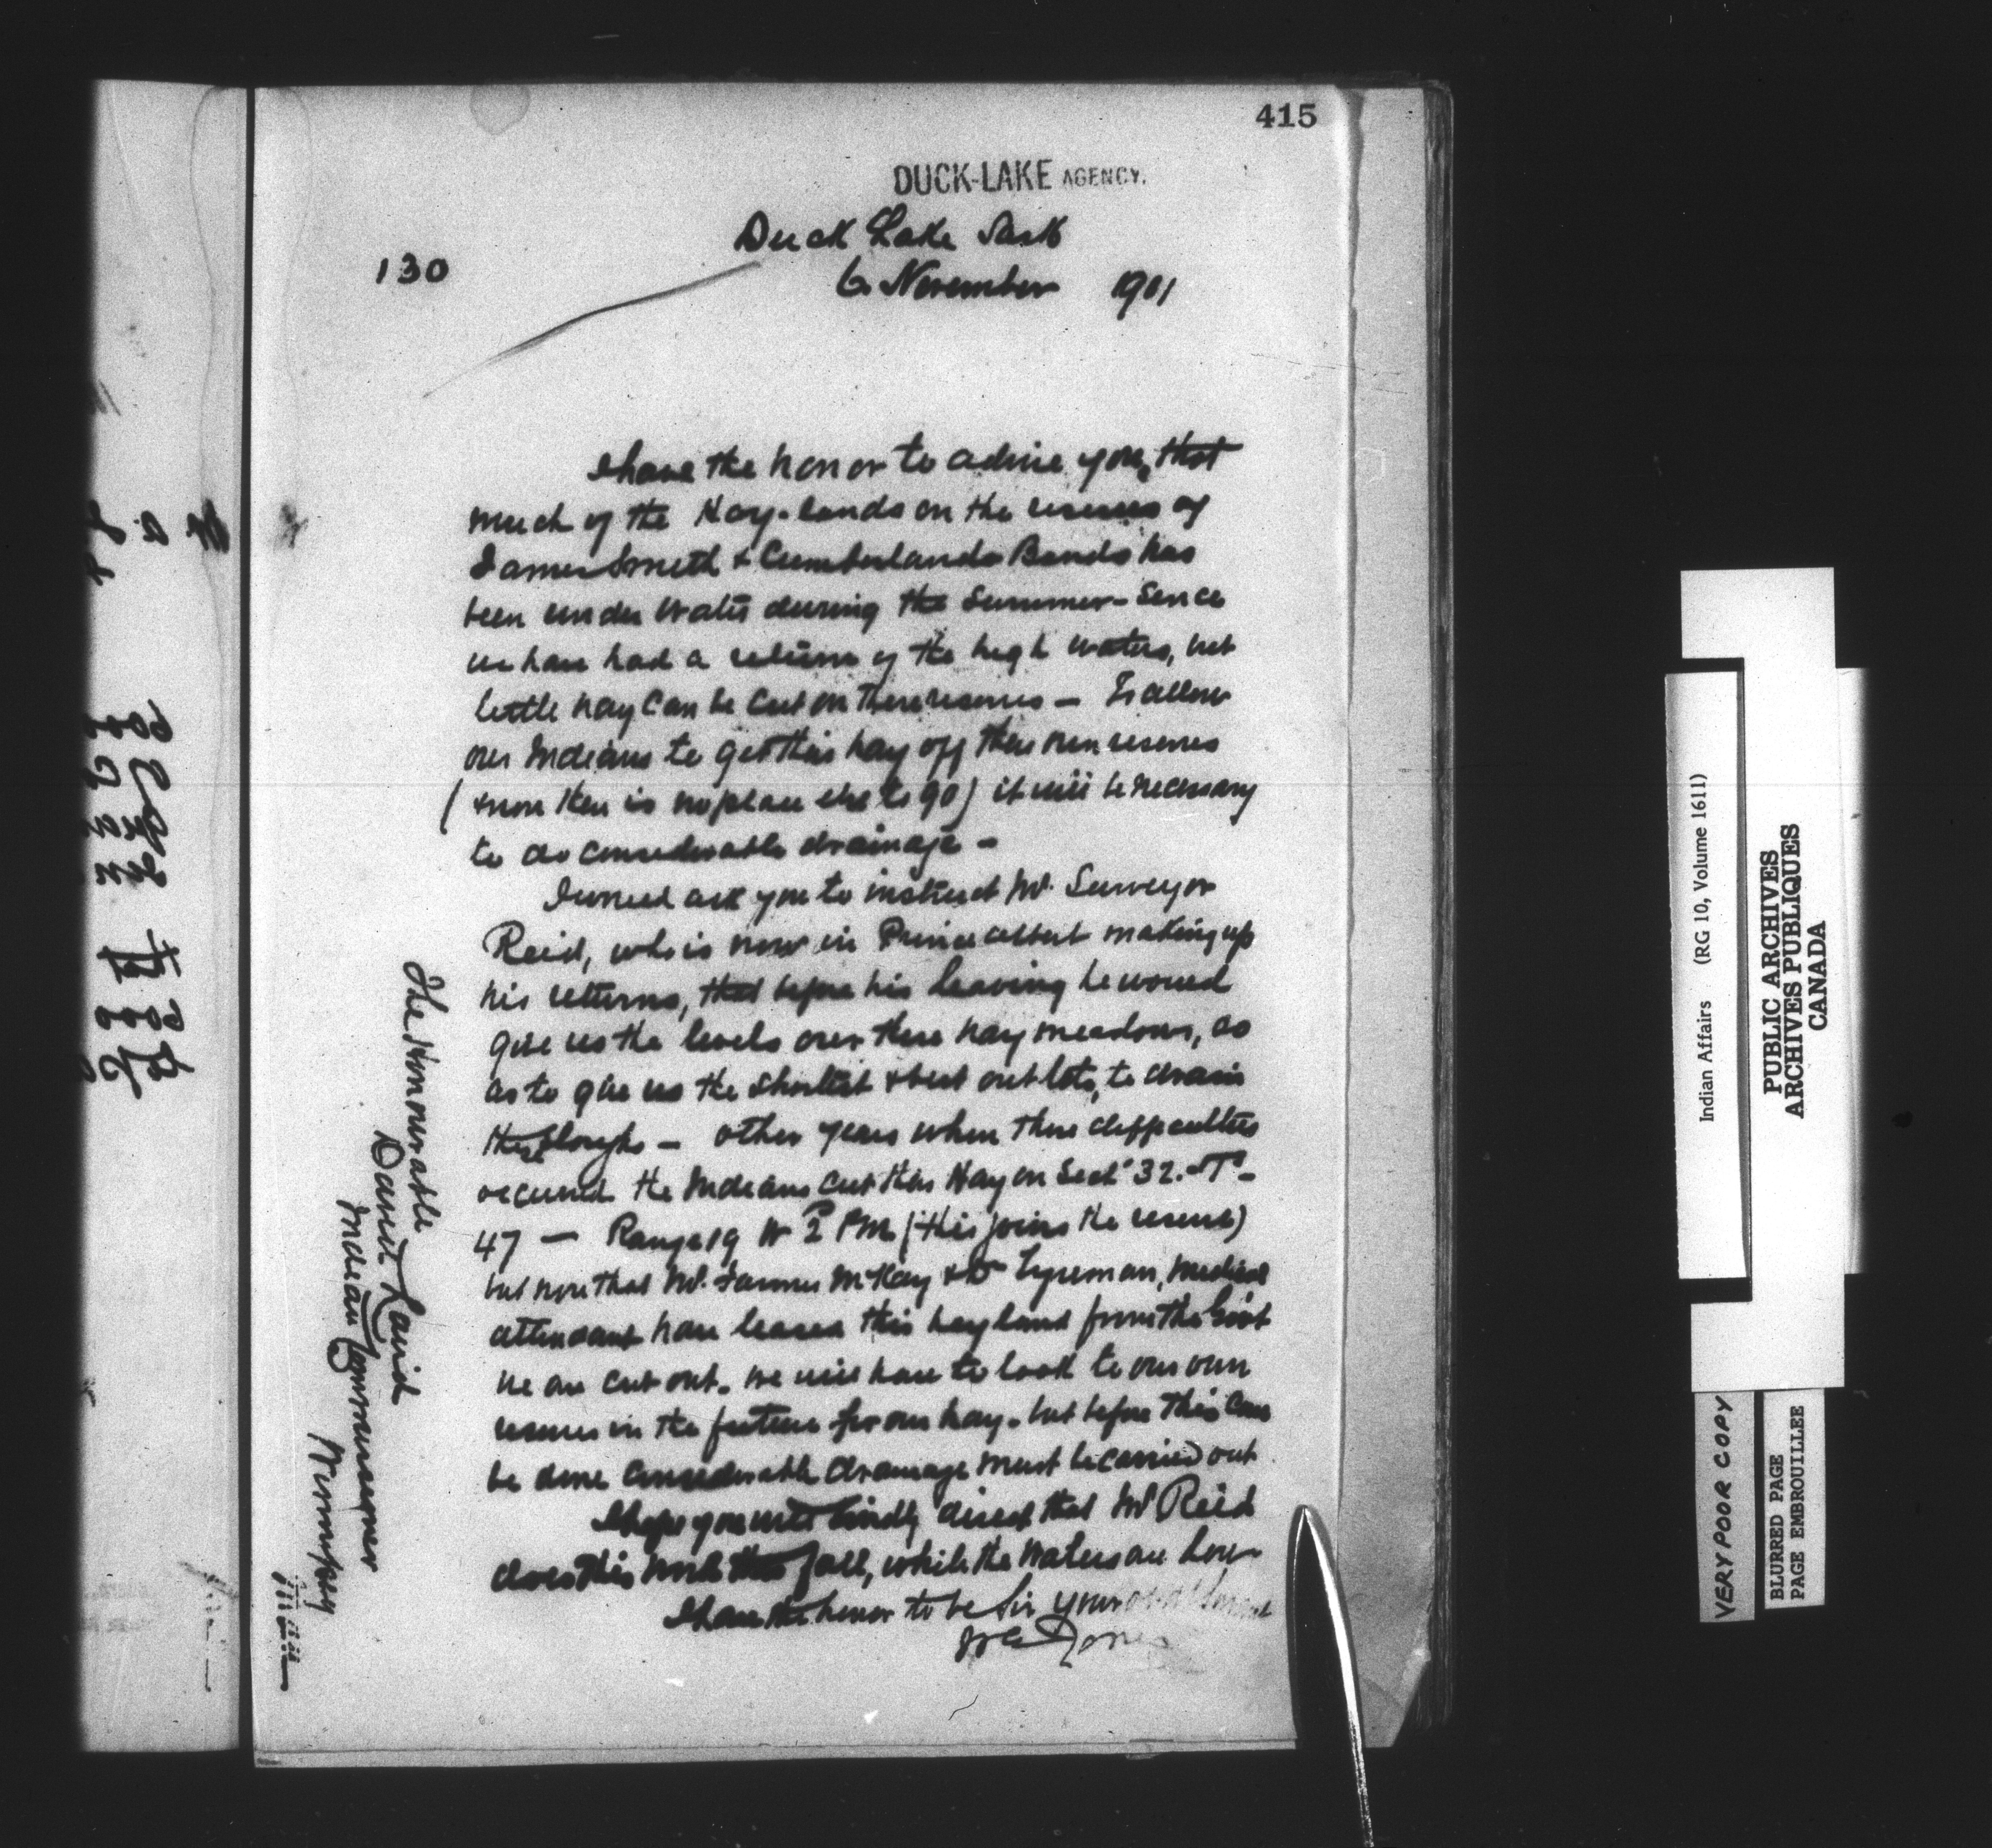 415
DUCK-LAKE AGENCY.
Duck Lake Sask
130
6 November 1901
I have the honor to advise you, that
much of the Hay-lands on the reserves of
James Smith & Cumberlands Bands has
been under water during the Summer - Since
we have had a return of the high waters, but
little hay can be cut on these reserves — To allow
our Indians to get this hay off their own reserves
(& now there is no place else to go) it will be necessary
to do considerable drainage —
I would ask you to instruct Mr. Surveyor
Reid, who is now in Prince Albert making up
his returns, that before his leaving he would
give us the levels over these hay meadows, so
as to give us the shortest & best outlets, to drain
these sloughs — other years when these difficulties
occurred the Indians cut their Hay on Sect 32. - Tp -
47 — Range 19 W 2 PM (this joins the reserve)
but now that Mr. Farmer McKay & Dr Tyreman, medical
attendant have leased this hay land from the Govt
we are cut out. we will have to look to our own
reserves in the future for our hay. but before this can
be done considerable drainage must be carried out
I hope you will kindly direct that Mr Reid
does this work this fall, while the waters are low
I have the honor to be Sir your
W E Jones
The Honourable
David Laird
Indian Commissioner
Winnipeg
Man
Indian Affairs (RG 10, Volume 1611)
PUBLIC ARCHIVES
ARCHIVES PUBLIQUES
CANADA
VERY POOR COPY
BLURRED PAGE
PAGE EMBROUILLEE